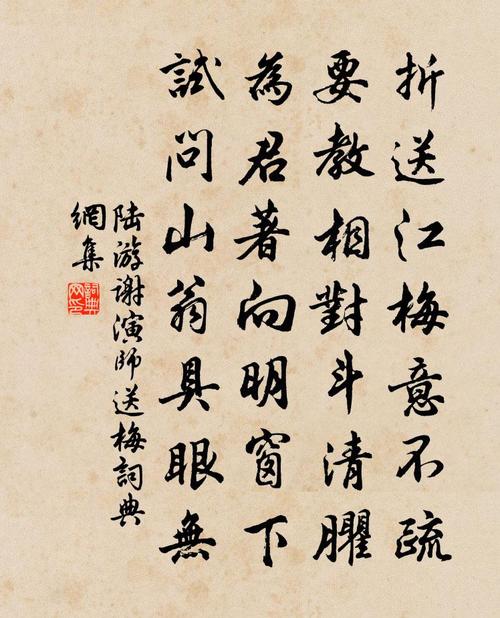 折送江梅意不疏
要教相對斗清臞
為君著向明窗下
試問山翁具眼無
陆游谢演师送梅詞典
網集
詞典網印